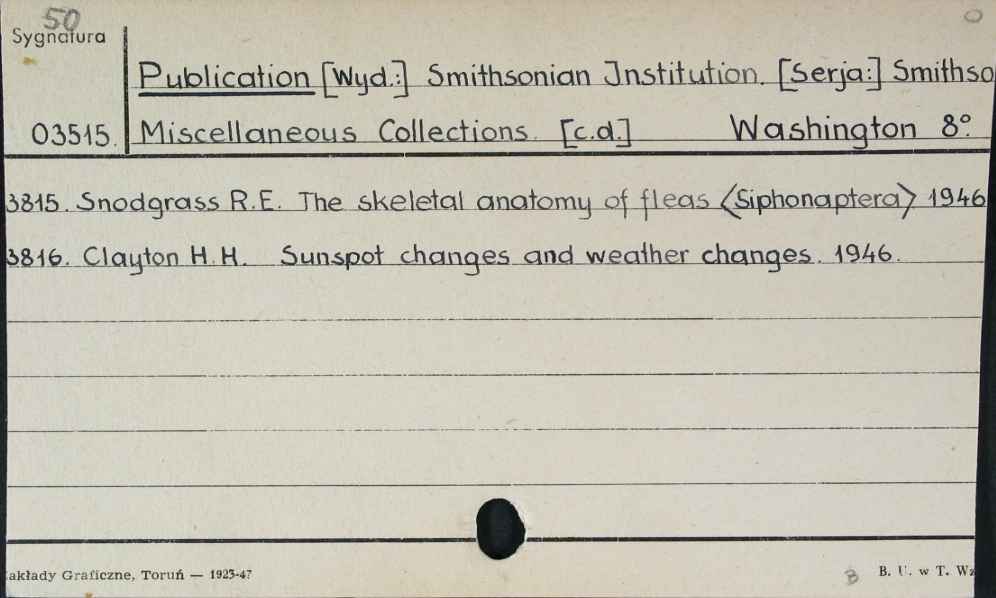 50
Sygnatura
Publication [Wyd.:] Smithsonian Institution. [Serja:] Smithso
03515. Miscellaneous Collections. [c.d.] Washington 8°.
3815. Snodgrass R.E. The skeletal anatomy of fleas <Siphonaptera> 1946
3816. Clayton H.H. Sunspot changes and weather changes. 1946.
akłady Graficzne, Toruń — 1923-47
B B. U. w T. Wz